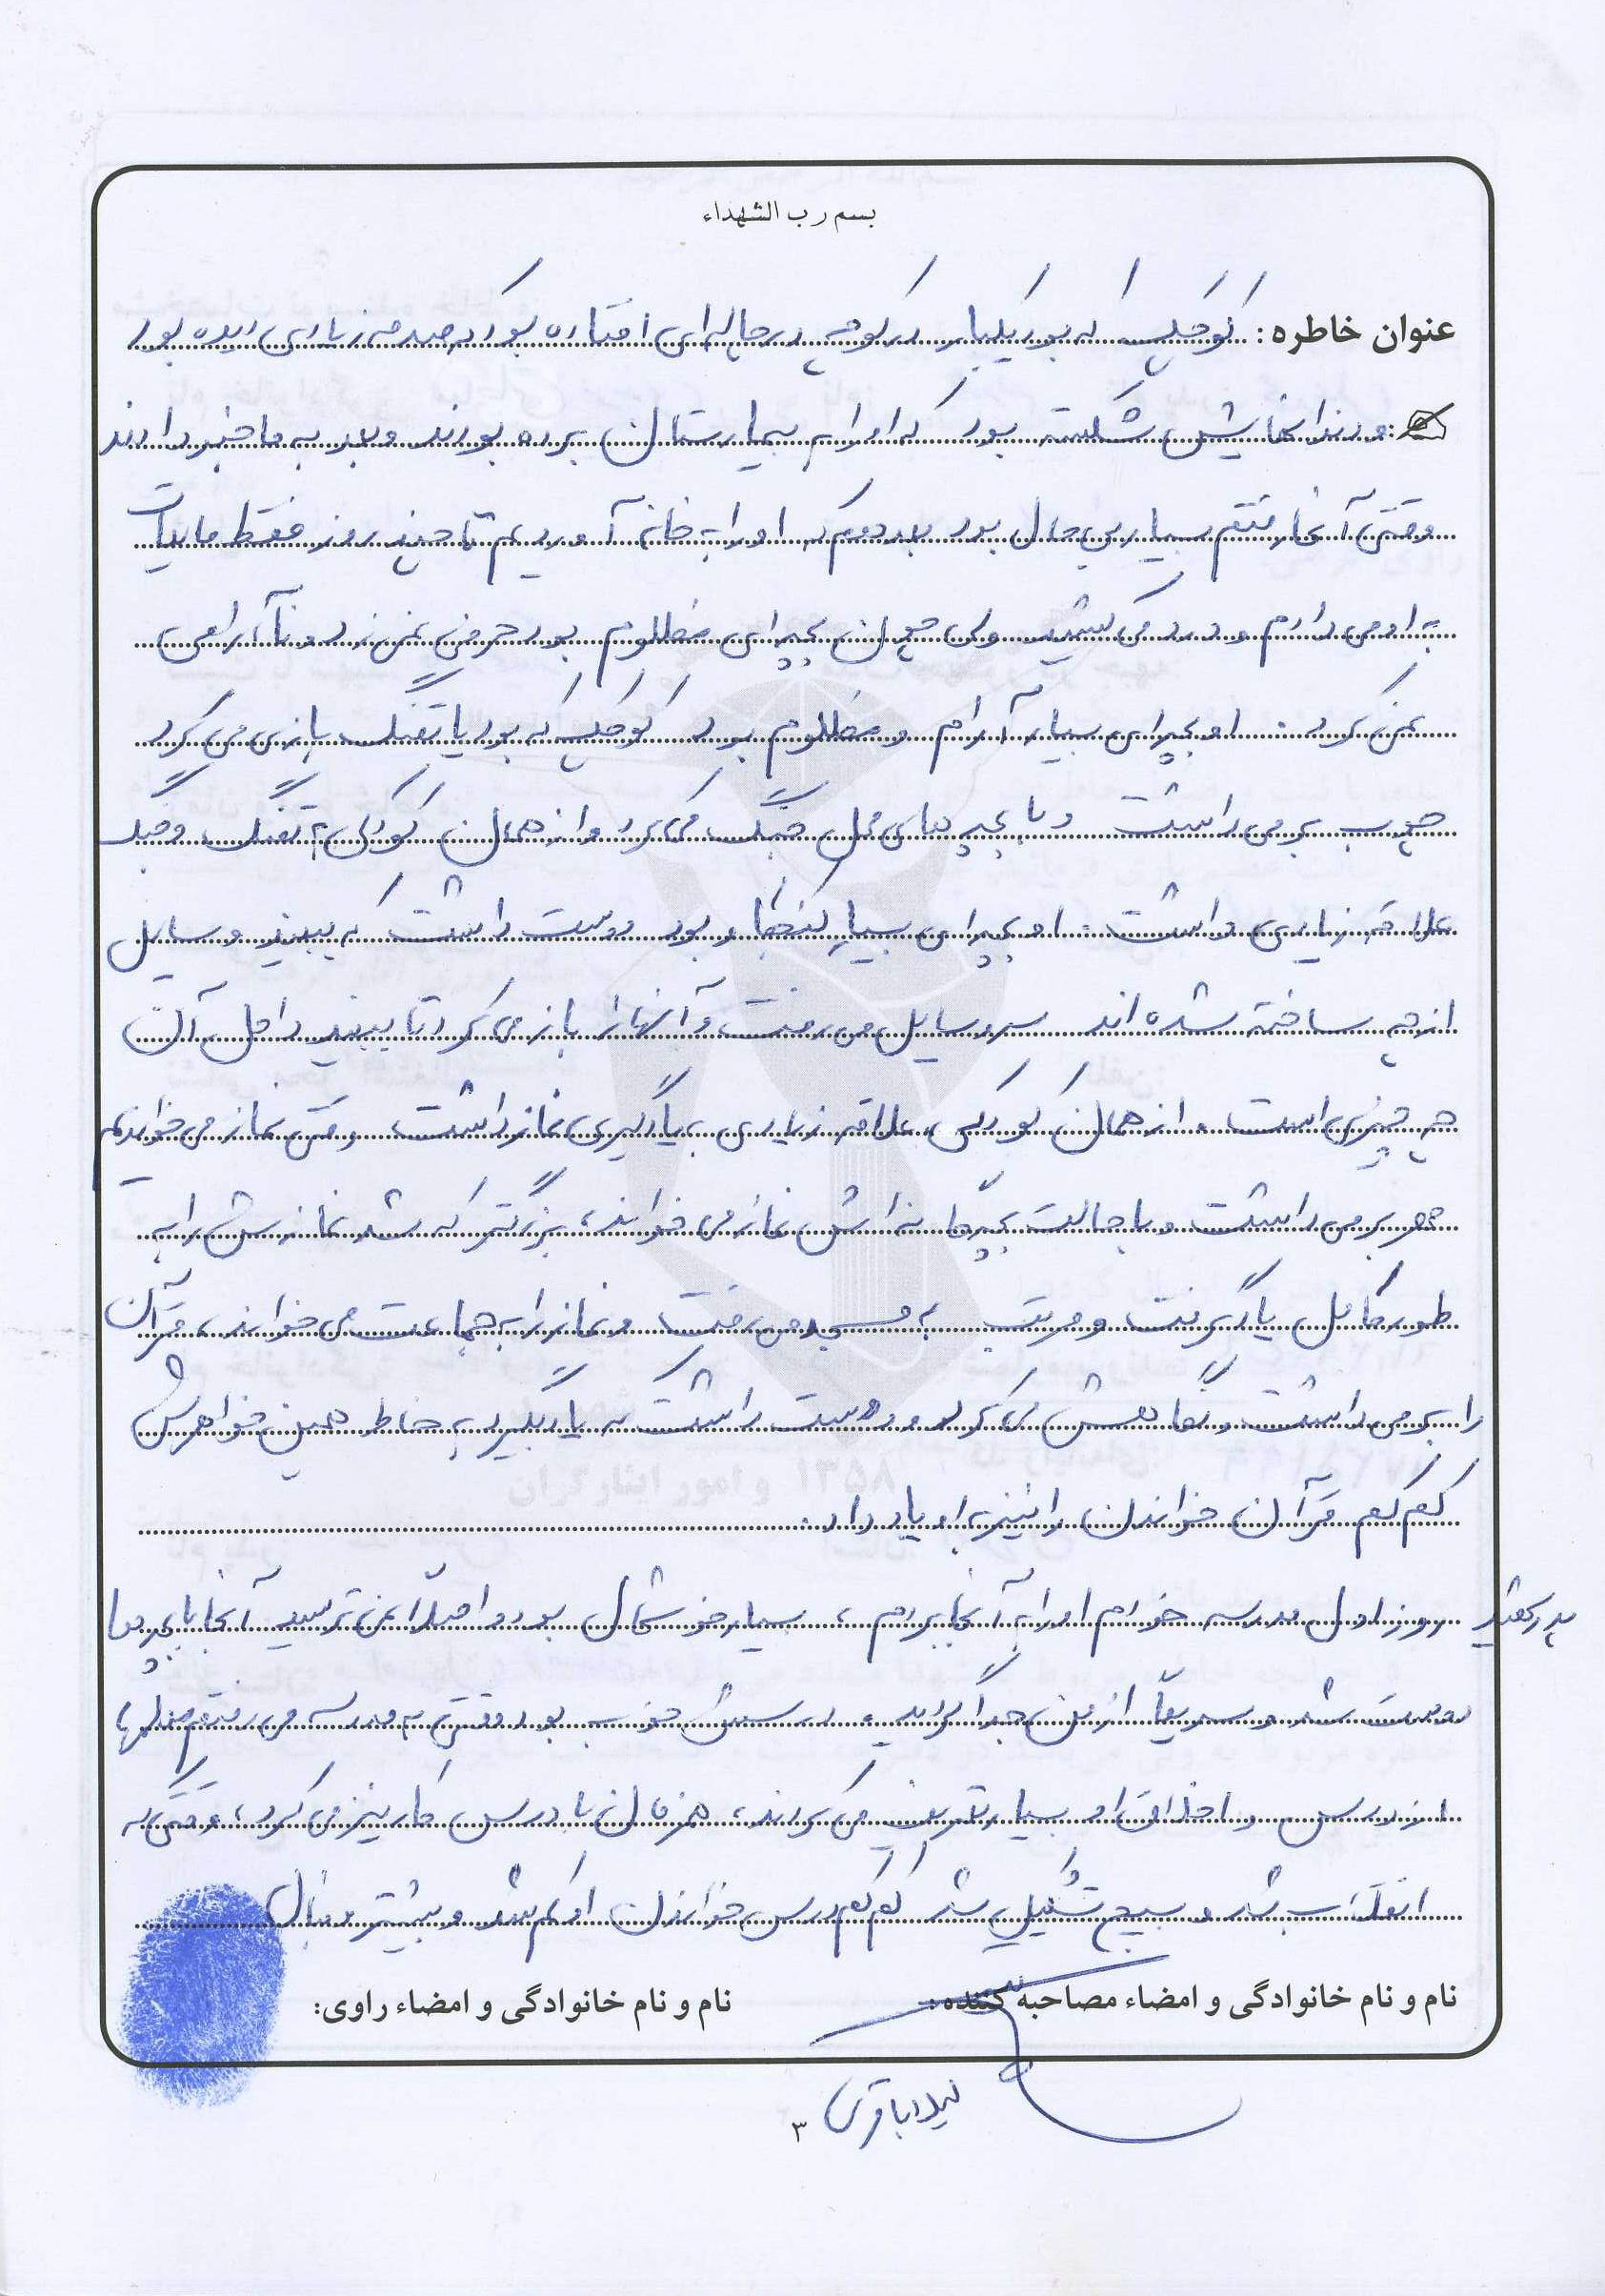 بسم رب الشهداء
عنوان خاطره: کوچک که بود یکبار در کوچه در چاله‌ای افتاده بود که صدمه زیادی دیده بود
و دندانهایش شکسته بود که او را به بیمارستان برده بودند و بعد به ما خبر دادند
وقتی آنجا رفتم بسیار بی حال بود بعد دوم که او را به خانه آوردیم تا چند روز فقط مایعات
به او می دادم و درد می کشید ولی چون بچه ای مظلوم بود حرفی نمی زد و ناآرامی
نمی کرد. او بچه ای بسیار آرام و مظلوم بود کوچک که بود با تفنگ بازی می کرد
چوب برمی داشت و با بچه های محل جنگ می کرد و از همان کودکی به تفنگ و جنگ
علاقه زیادی داشت. او بچه ای بسیار کنجکاو بود دوست داشت که ببیند وسایل
از چه ساخته شده اند سر وسایل می رفت و آنها را باز می کرد تا ببیند داخل آن
چه چیزی است. از همان کودکی علاقه زیادی به یادگیری نماز داشت وقتی نماز می خواندیم
مهر برمی داشت و با حالت بچه گانه اش نماز می خواند، بزرگتر که شد نمازش را به
طور کامل یاد گرفت و مرتب به مسجد می رفت و نماز را به جماعت می خواند، قرآن
را برمی داشت و نگاهش می کرد و دوست داشت که یاد بگیرد به خاطر همین خواهرش
کم کم قرآن خواندن را نیز به او یاد داد.
پدر شهید روز اول مدرسه خودم او را به آنجا بردم، بسیار خوشحال بود و اصلاً نمی ترسید آنجا با بچه ها
دوست شد و سریعاً از من جدا گردید. درسش خوب بود وقتی به مدرسه می رفتم معلمها
از درس و اخلاق او بسیار تعریف می کردند، همزمان با درس کار نیز می کرد، وقتی که
انقلاب شد و بسیج تشکیل شد کم کم درس خواندن او کم شد و بیشتر دنبال
نام و نام خانوادگی و امضاء مصاحبه کننده:
نام و نام خانوادگی و امضاء راوی:
لیلا باقری
۳